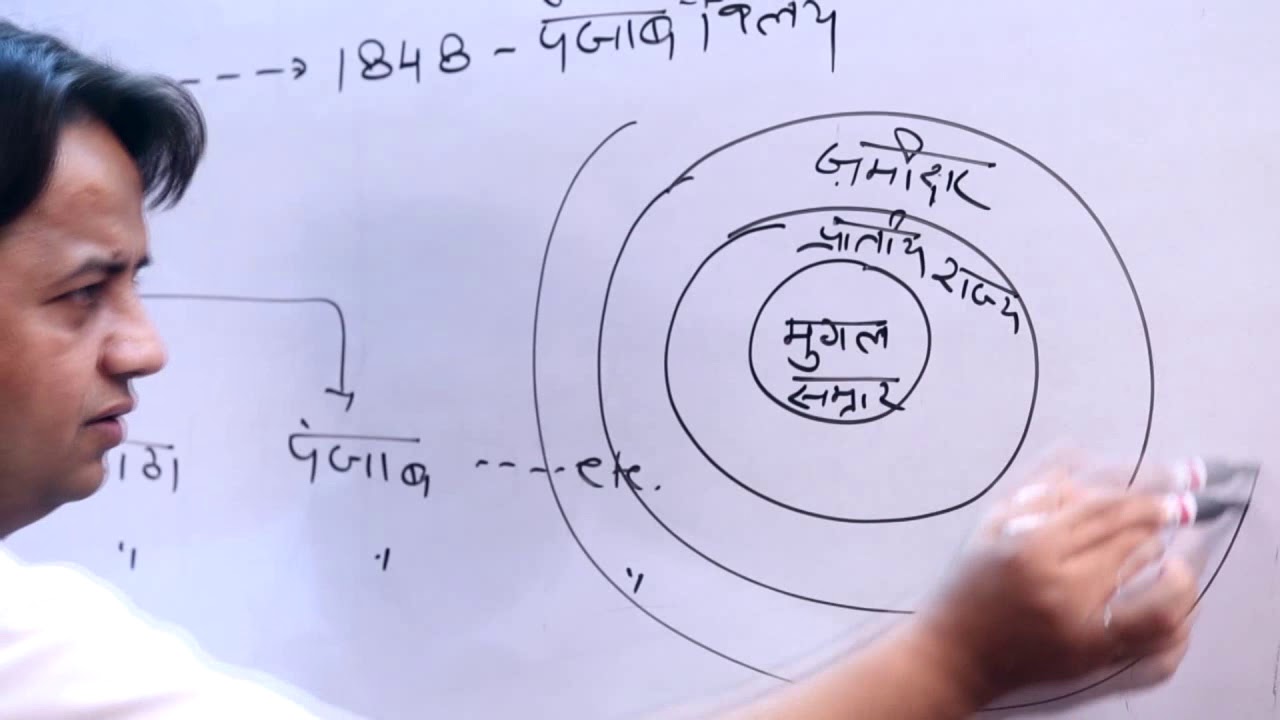 1848 - पंजाब विलय
ज़मींदार
प्रांतीय राज्य
मुगल
सम्राट
पंजाब ---- etc.
" " "